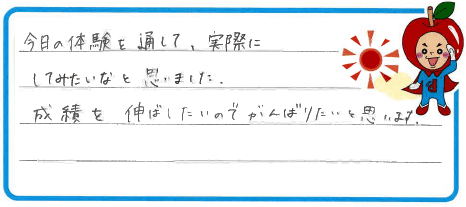 今日の体験を通して、実際に
してみたいなと思いました。
成績を伸ばしたいのでがんばりたいと思います。